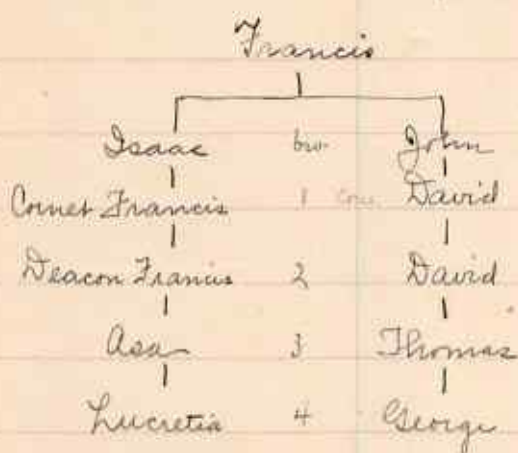 Francis
Isaac bro. John
Cornet Francis 1 cou. David
Deacon Francis 2 David
Asa 3 Thomas
Lucretia 4 George